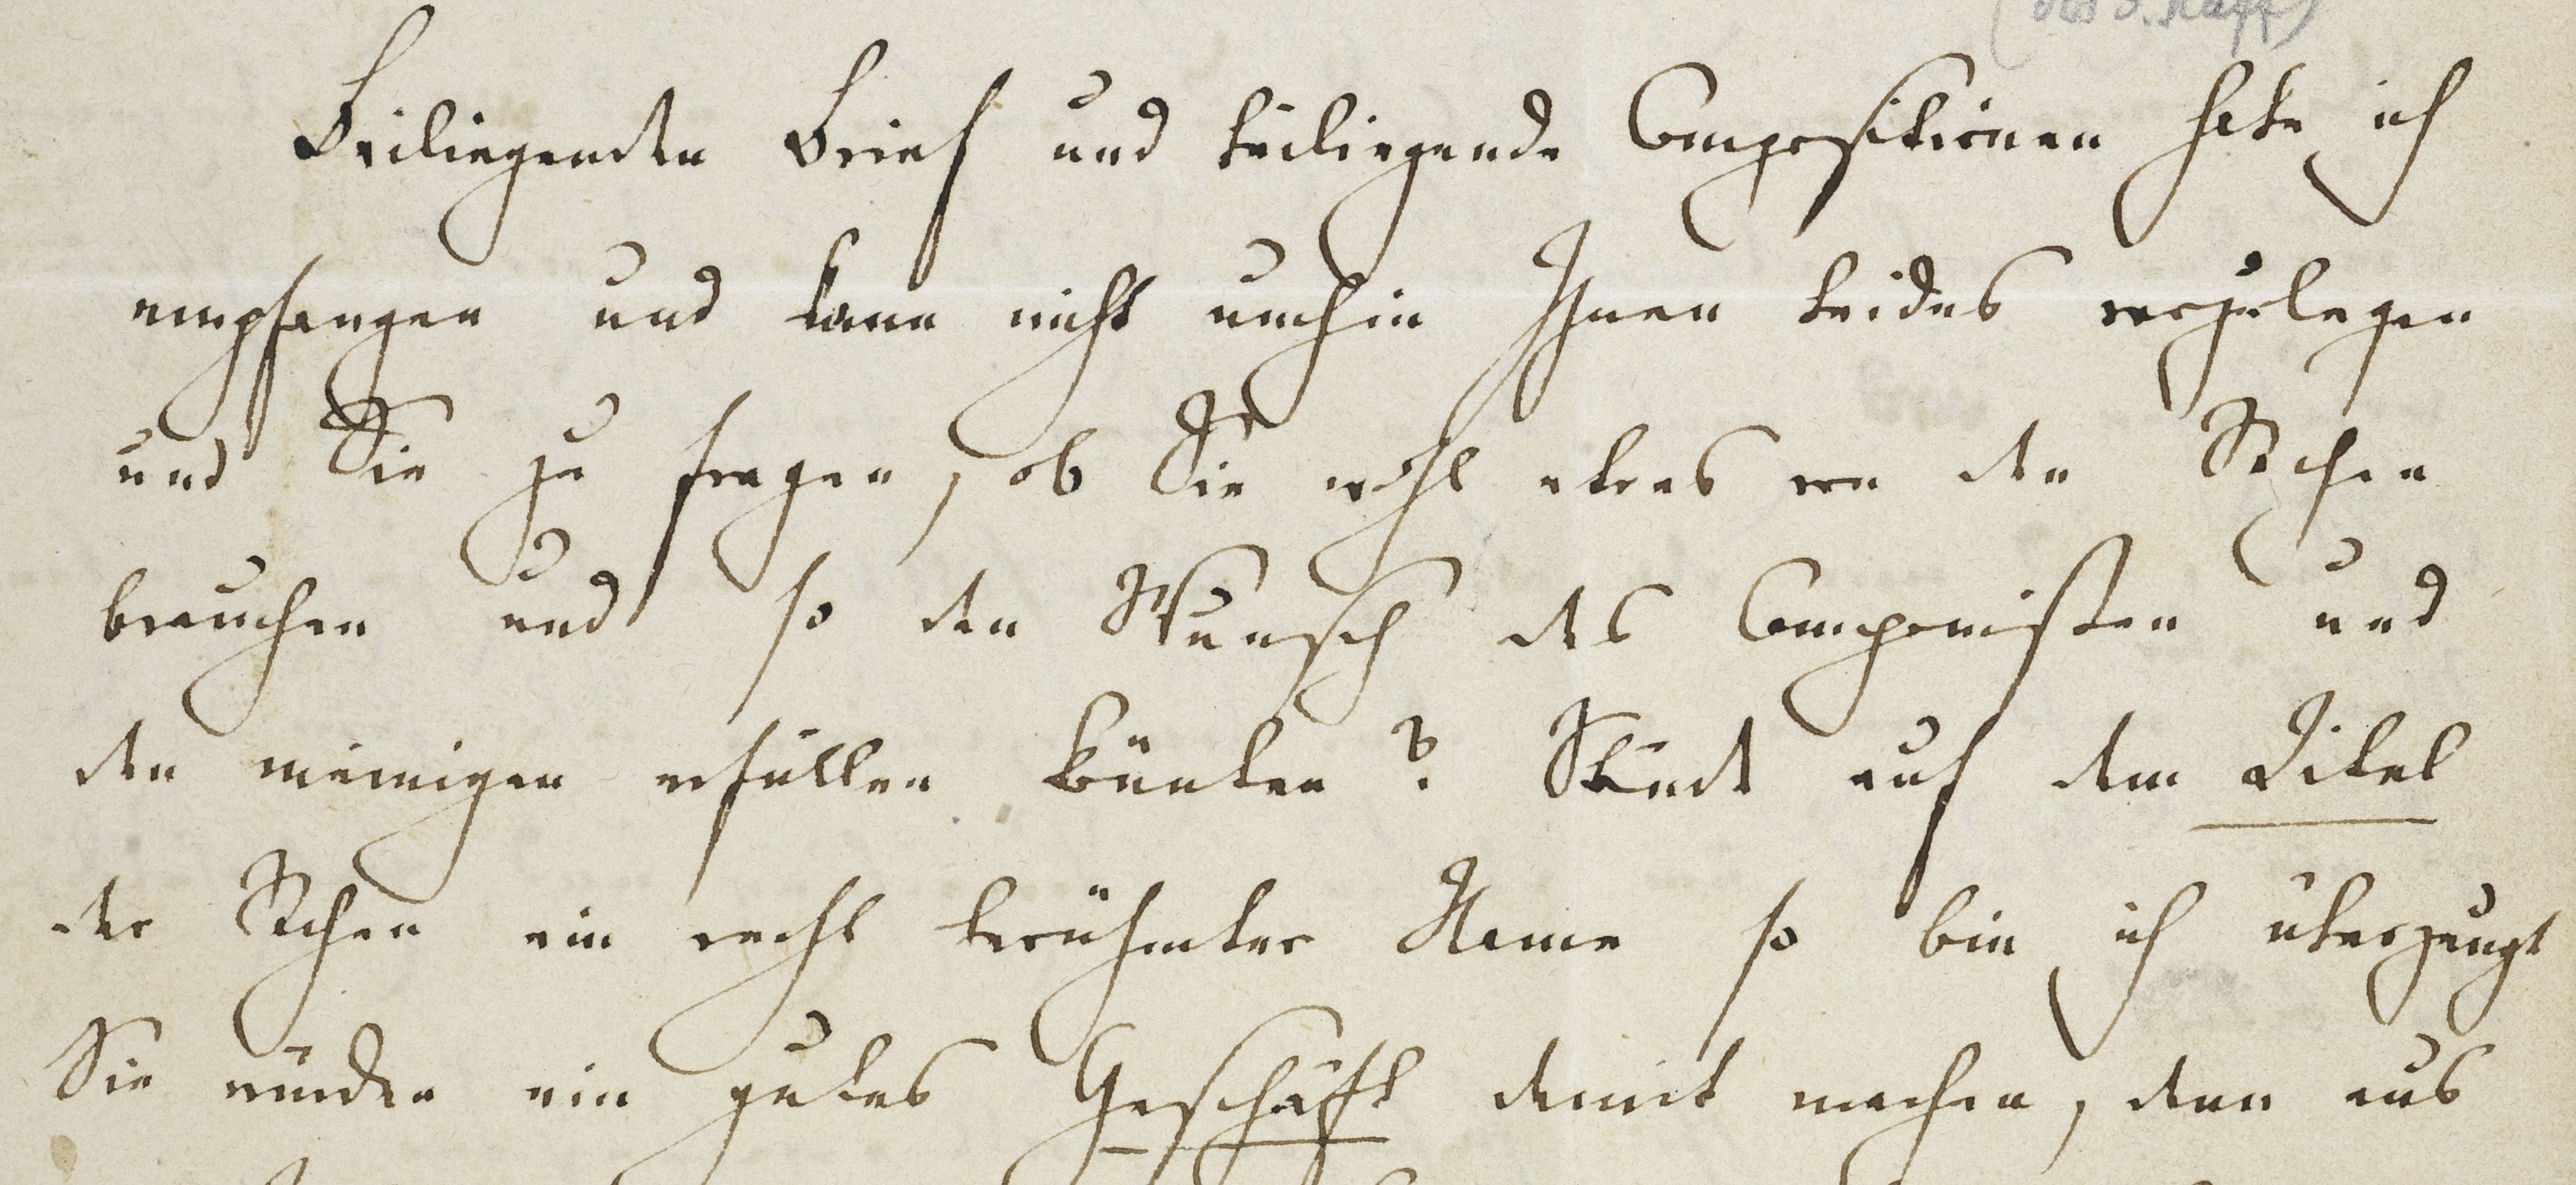 (des J. Raff)
Beiliegenden Brief und beiliegende Compositionen habe ich
empfangen und kann nicht umhin Ihnen beides vorzulegen
und Sie zu fragen, ob Sie wohl etwas von den Sachen
brauchen und so den Wunsch des Componisten und
den meinigen erfüllen könnten? Stünde auf dem Titel
der Sachen ein recht berühmter Name so bin ich überzeugt
Sie würden ein gutes Geschäft damit machen, denn aus